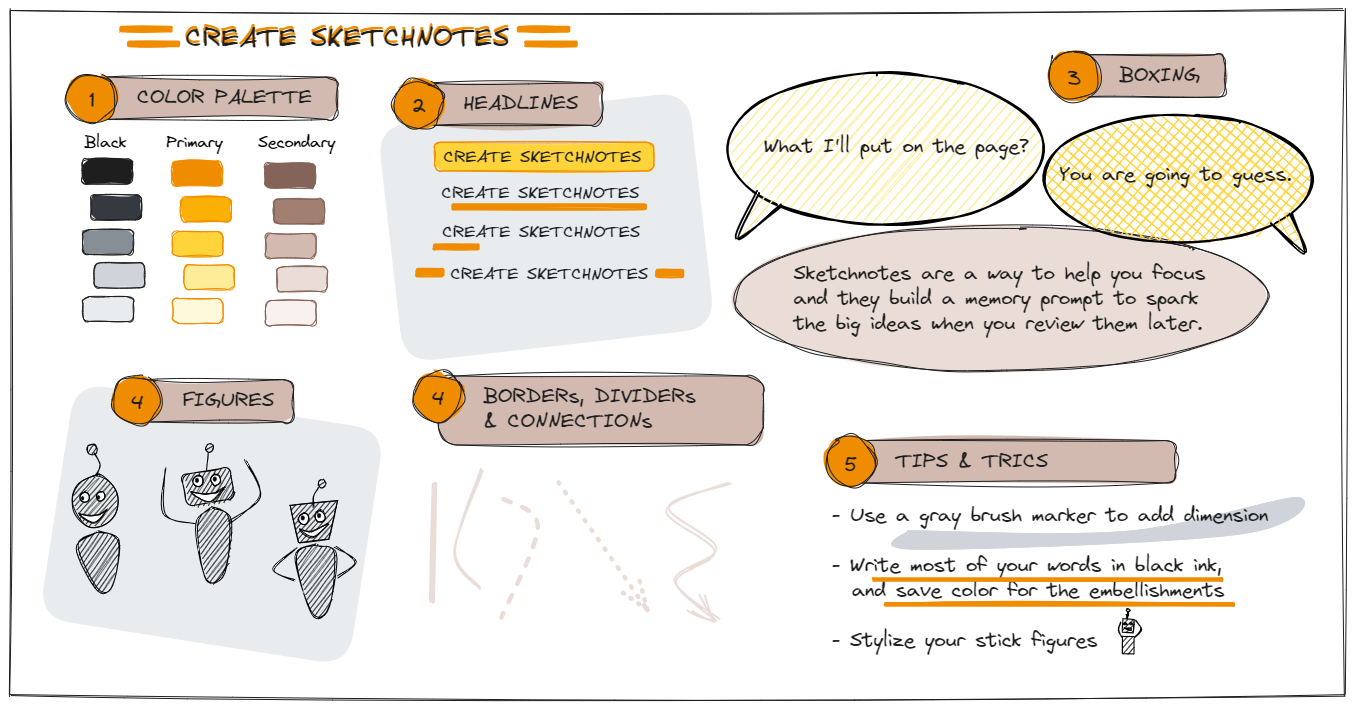 CREATE SKETCHNOTES
1 COLOR PALETTE
Black Primary Secondary
2 HEADLINES
CREATE SKETCHNOTES
CREATE SKETCHNOTES
CREATE SKETCHNOTES
CREATE SKETCHNOTES
3 BOXING
What I'll put on the page?
You are going to guess.
Sketchnotes are a way to help you focus
and they build a memory prompt to spark
the big ideas when you review them later.
4 FIGURES
4 BORDERs, DIVIDERs
& CONNECTIONs
5 TIPS & TRICS
- Use a gray brush marker to add dimension
- Write most of your words in black ink,
and save color for the embellishments
- Stylize your stick figures